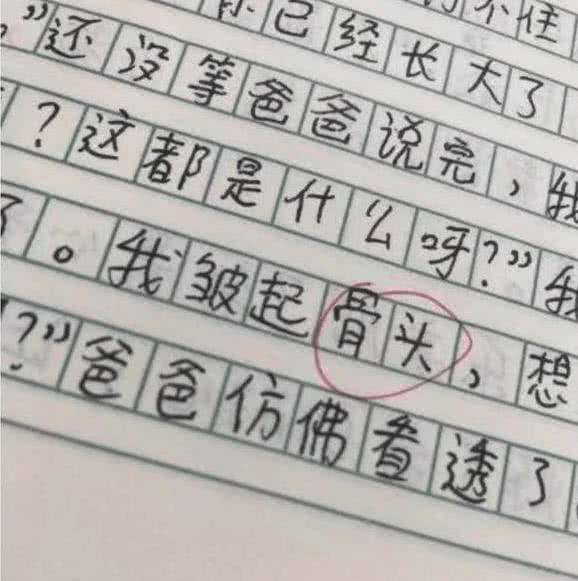 你已经长大了
”还没等爸爸说完，我
？这都是什么呀？”我
了。我皱起骨头，想
？”爸爸仿佛看透了